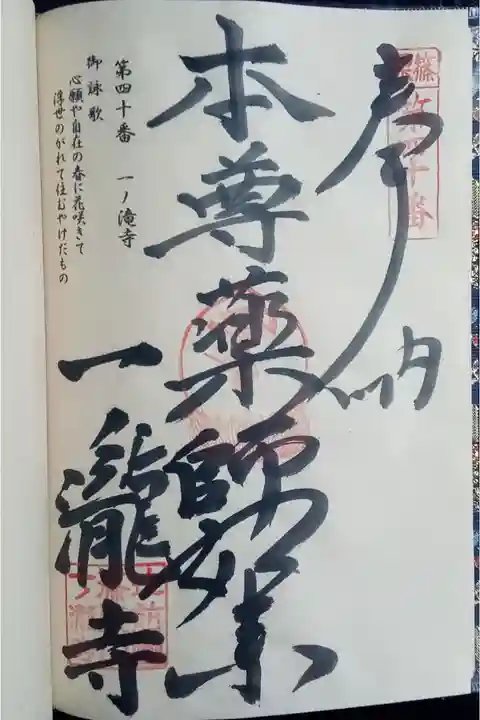 奉納
篠
第四十番
本尊薬師如来
一瀧寺
第四十番 一ノ滝寺
御詠歌
心願や自在の春に花咲きて
浮世のがれて住むやけだもの